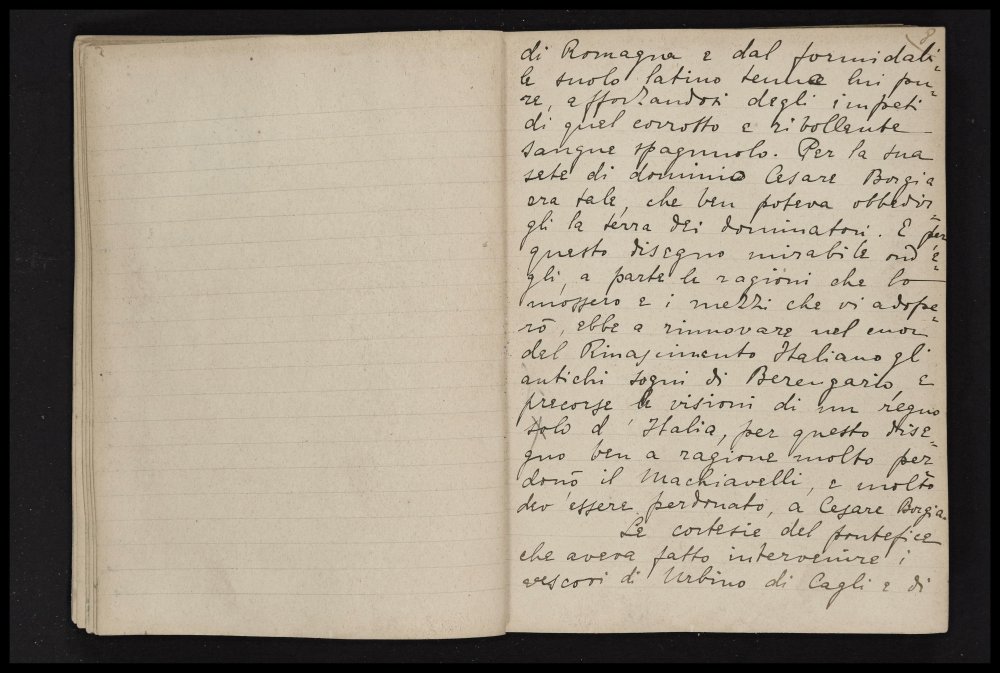 8
di Romagna e dal formidabi=
le suolo latino tenne lui pu=
re, afforzandosi degli impeti
di quel corrotto e ribollente
sangue spagnuolo. Per la sua
sete di dominio Cesare Borgia
era tale, che ben poteva obbedir
gli la terra dei dominatori. E per
questo disegno mirabile ond'e=
gli, a parte le ragioni che lo
mossero e i mezzi che vi adope=
rò, ebbe a rinnovare nel cuor
del Rinascimento Italiano gli
antichi sogni di Berengario, e
precorse le visioni di un regno
solo d'Italia, per questo dise=
gno ben a ragione molto per=
donò il Machiavelli, e molto
dev'essere perdonato, a Cesare Borgia.
Le cortesie del pontefice
che aveva fatto intervenire i
vescovi di Urbino di Cagli e di